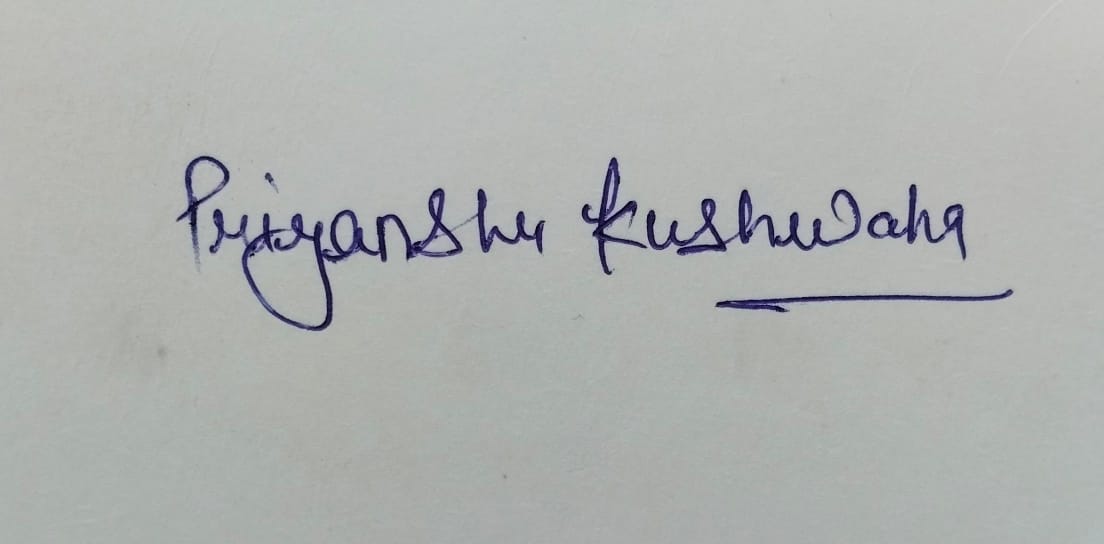 Priyanshu Kushwaha